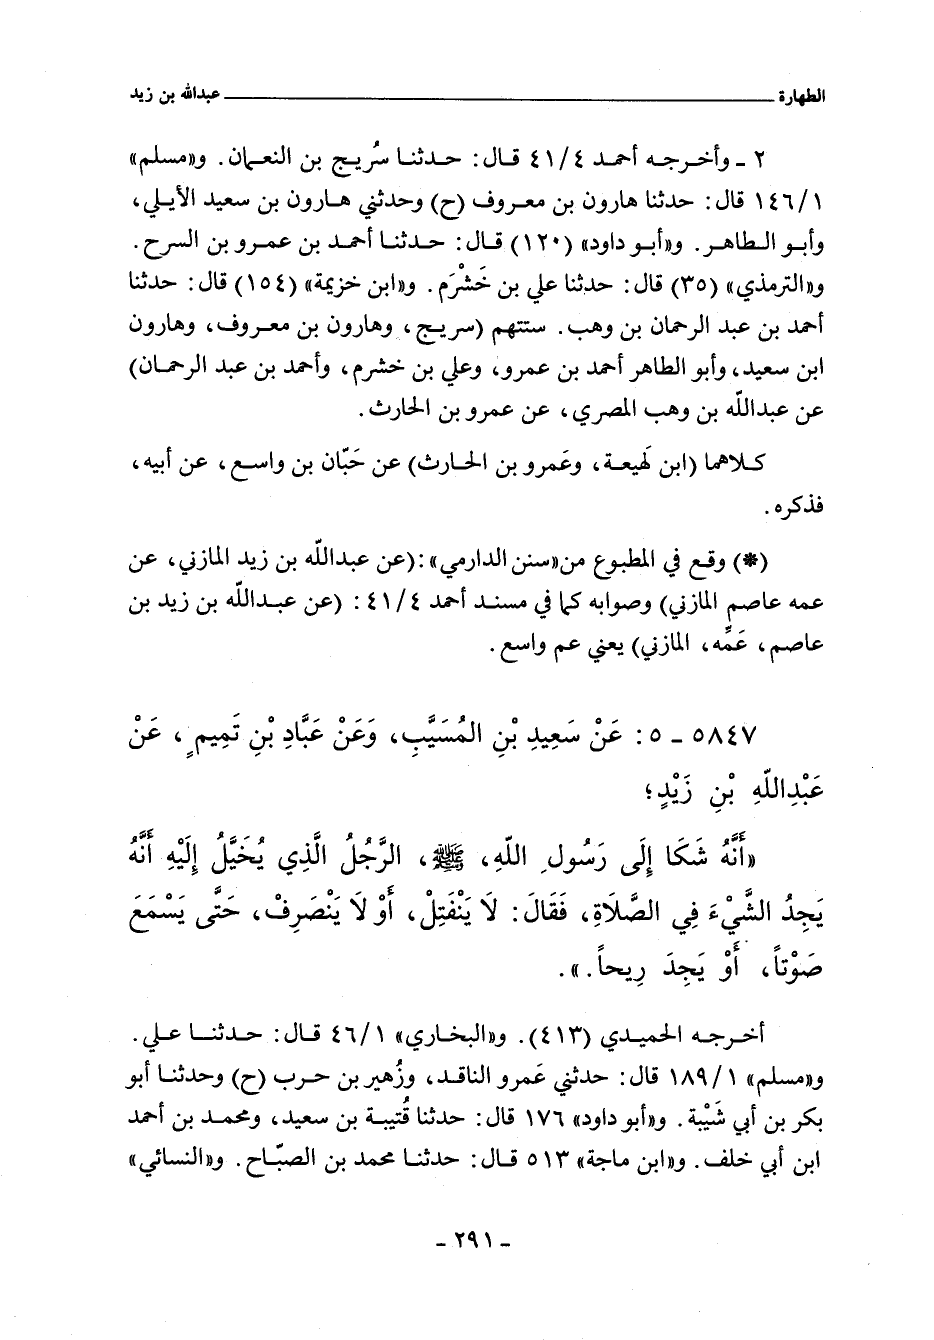 الطهارة ــــــــــــــــــــــــــــــــــــــــ عبدالله بن زيد
٢ ـ وأخرجه أحمد ٤١/٤ قال: حدثنا سُريج بن النعمان. و«مسلم»
١٤٦/١ قال: حدثنا هارون بن معروف (ح) وحدثني هارون بن سعيد الأيلي،
وأبو الطاهر. و«أبو داود» (١٢٠) قال: حدثنا أحمد بن عمرو بن السرح.
و«الترمذي» (٣٥) قال: حدثنا علي بن خَشْرَم. و«ابن خزيمة» (١٥٤) قال: حدثنا
أحمد بن عبد الرحمان بن وهب. ستتهم (سريج، وهارون بن معروف، وهارون
ابن سعيد، وأبو الطاهر أحمد بن عمرو، وعلي بن خشرم، وأحمد بن عبد الرحمان)
عن عبدالله بن وهب المصري، عن عمرو بن الحارث.
كلاهما (ابن لَهيعة، وعَمرو بن الحارث) عن حَبّان بن واسع، عن أبيه،
فذكره.
(*) وقع في المطبوع من«سنن الدارمي»:(عن عبدالله بن زيد المازني، عن
عمه عاصم المازني) وصوابه كما في مسند أحمد ٤١/٤: (عن عبدالله بن زيد بن
عاصم، عَمِّه، المازني) يعني عم واسع.
٥٨٤٧ ـ ٥: عَنْ سَعِيدِ بْنِ المُسَيَّبِ، وَعَنْ عَبَّادِ بْنِ تَمِيمٍ، عَنْ
عَبْدِاللّهِ بْنِ زَيْدٍ؛
«أَنَّهُ شَكَا إِلَى رَسُولِ اللّهِ، ﷺ، الرَّجُلُ الَّذِي يُخَيَّلُ إِلَيْهِ أَنَّهُ
يَجِدُ الشَّيْءَ فِي الصَّلَاةِ، فَقَالَ: لَا يَنْفَتِلْ، أَوْ لَا يَنْصَرِفْ، حَتَّى يَسْمَعَ
صَوْتاً، أَوْ يَجِدَ رِيحاً.».
أخرجه الحميدي (٤١٣). و«البخاري» ٤٦/١ قال: حدثنا علي.
و«مسلم» ١٨٩/١ قال: حدثني عَمرو الناقد، وزُهير بن حرب (ح) وحدثنا أبو
بكر بن أبي شَيْبة. و«أبو داود» ١٧٦ قال: حدثنا قُتيبة بن سعيد، ومحمد بن أحمد
ابن أبي خلف. و«ابن ماجة» ٥١٣ قال: حدثنا محمد بن الصبّاح. و«النسائي»
ـ ٢٩١ ـ